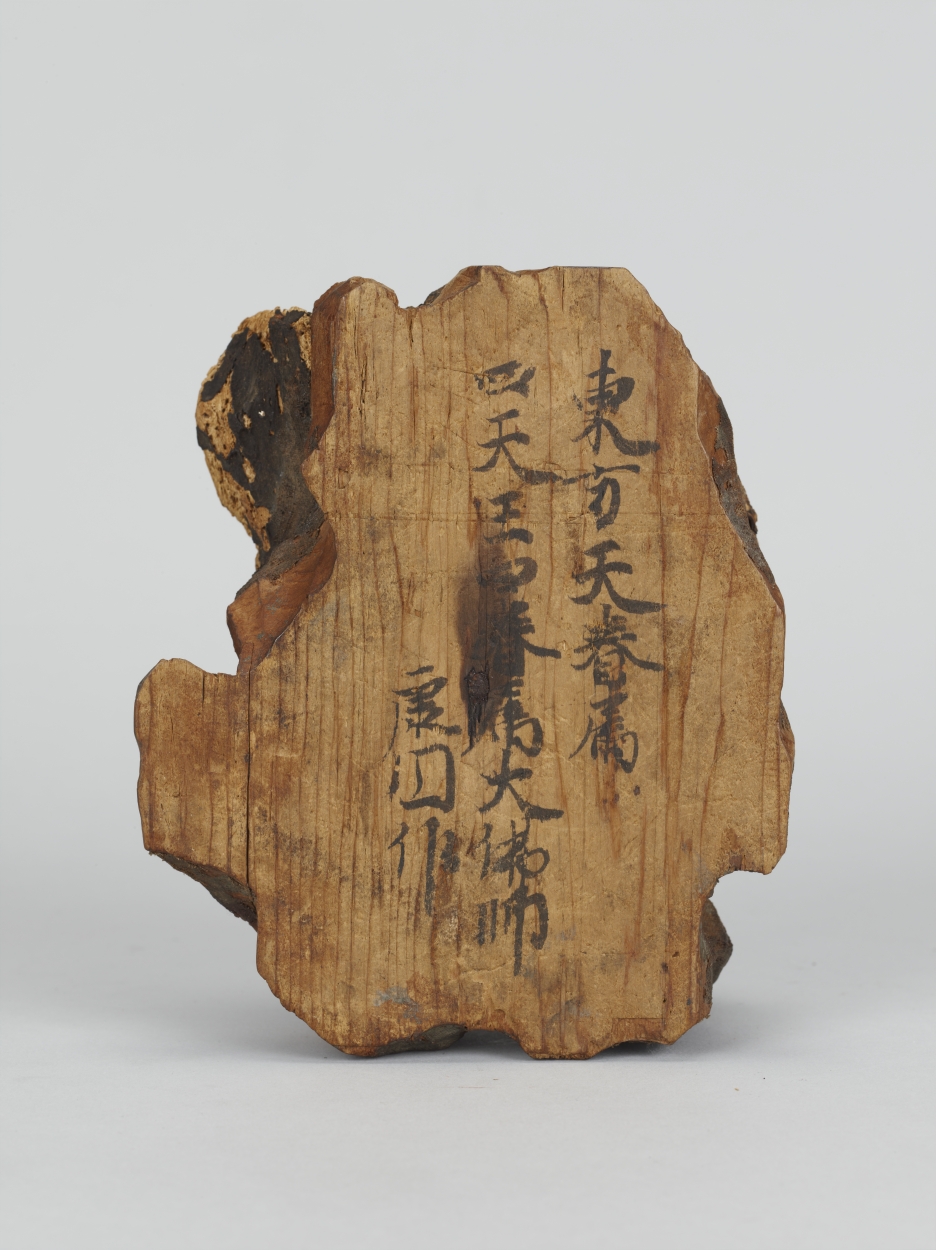 東方天眷属
四天王眷属大佛師
康円作